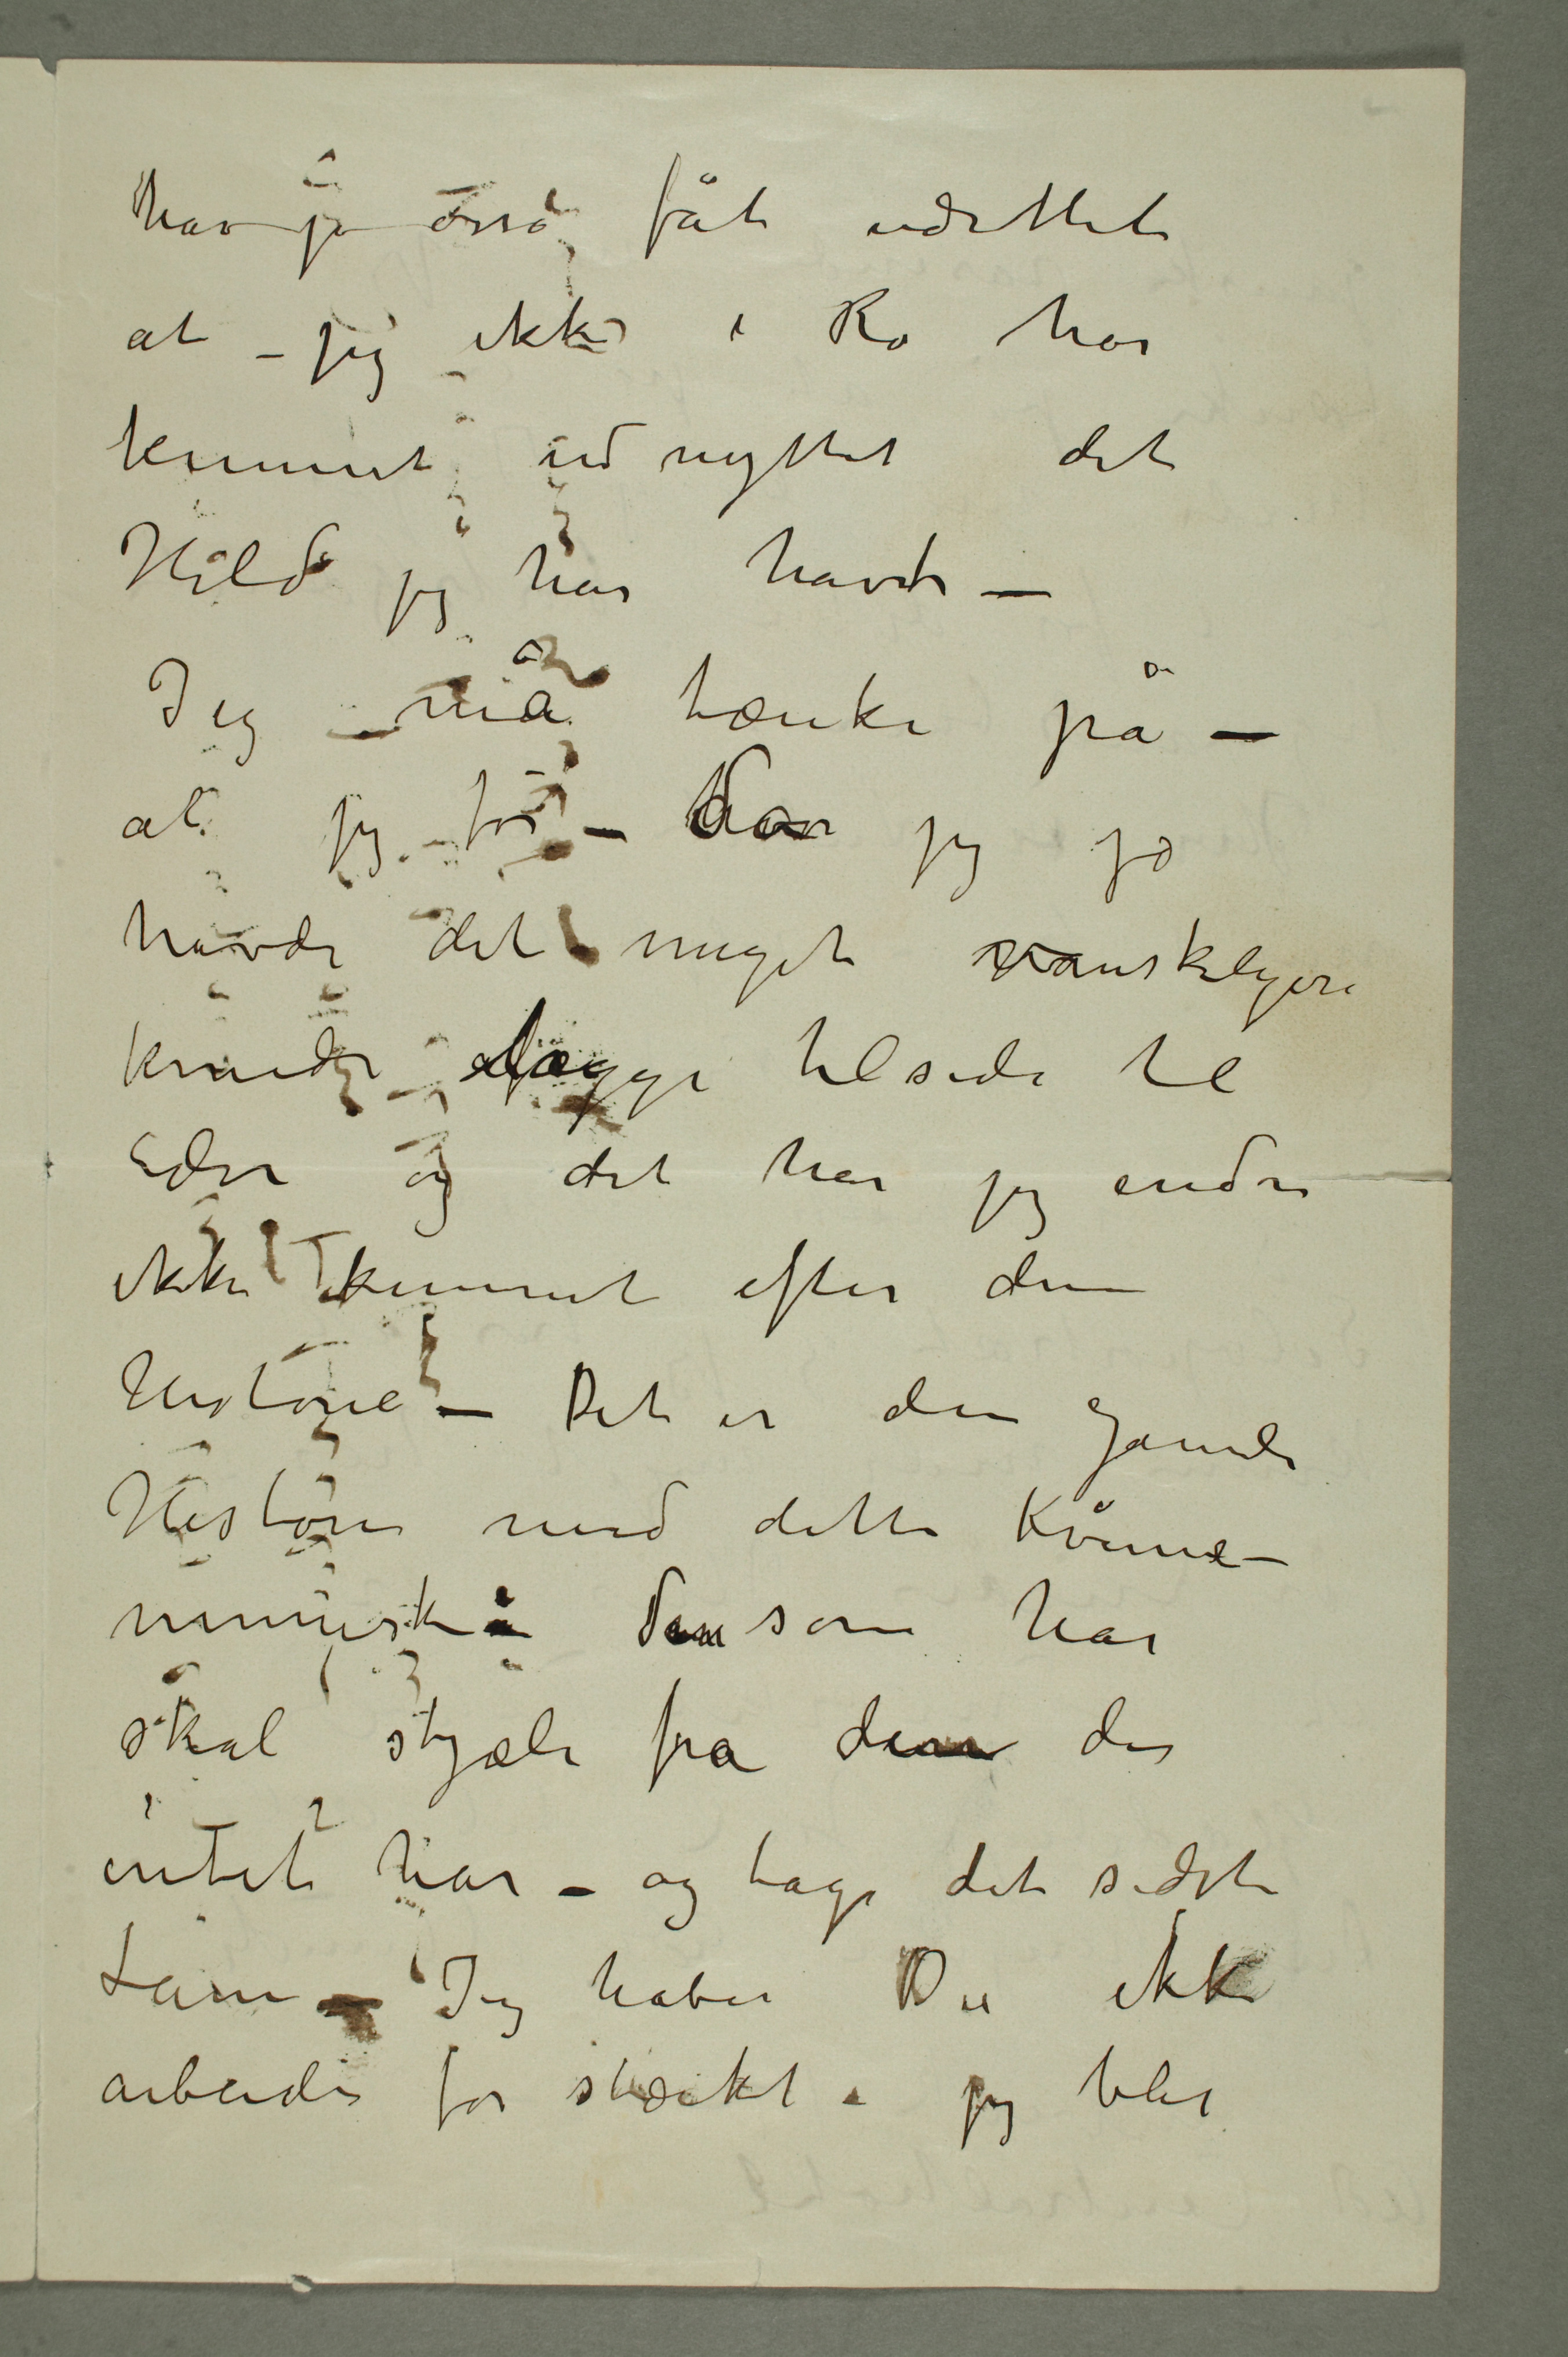 har jo også fåt udrettet
at – jeg ikke i Ro har
kunnet udnyttet det
Held jeg har havt –
Jeg må tænke på –
at jeg før – da jeg jo
havde det meget vanskeligere
kunde lægge tilside til
Eder og det har jeg endnu
ikke kunnet efter den
Historie – Det er den gamle
Historie med dette Kvinne-
menneske – den som har
skal stjæle fra den der
intet har – og tage det sidste
Lam – Jeg håber Du ikke
arbeider for stærkt – jeg blir